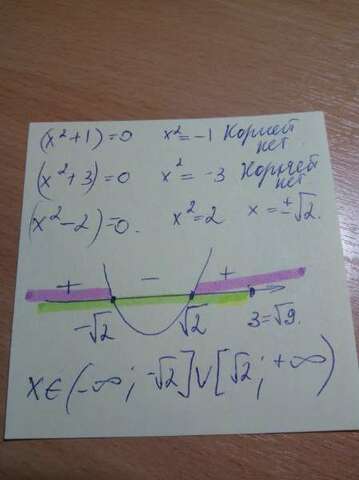 (x²+1)=0 x²=-1 Корней нет
(x²+3)=0 x²=-3 Корней нет
(x²-2)=0. x²=2 x=±√2.
+ - +
-√2 √2 3=√9.
x∈(-∞; -√2]∪[√2; +∞)